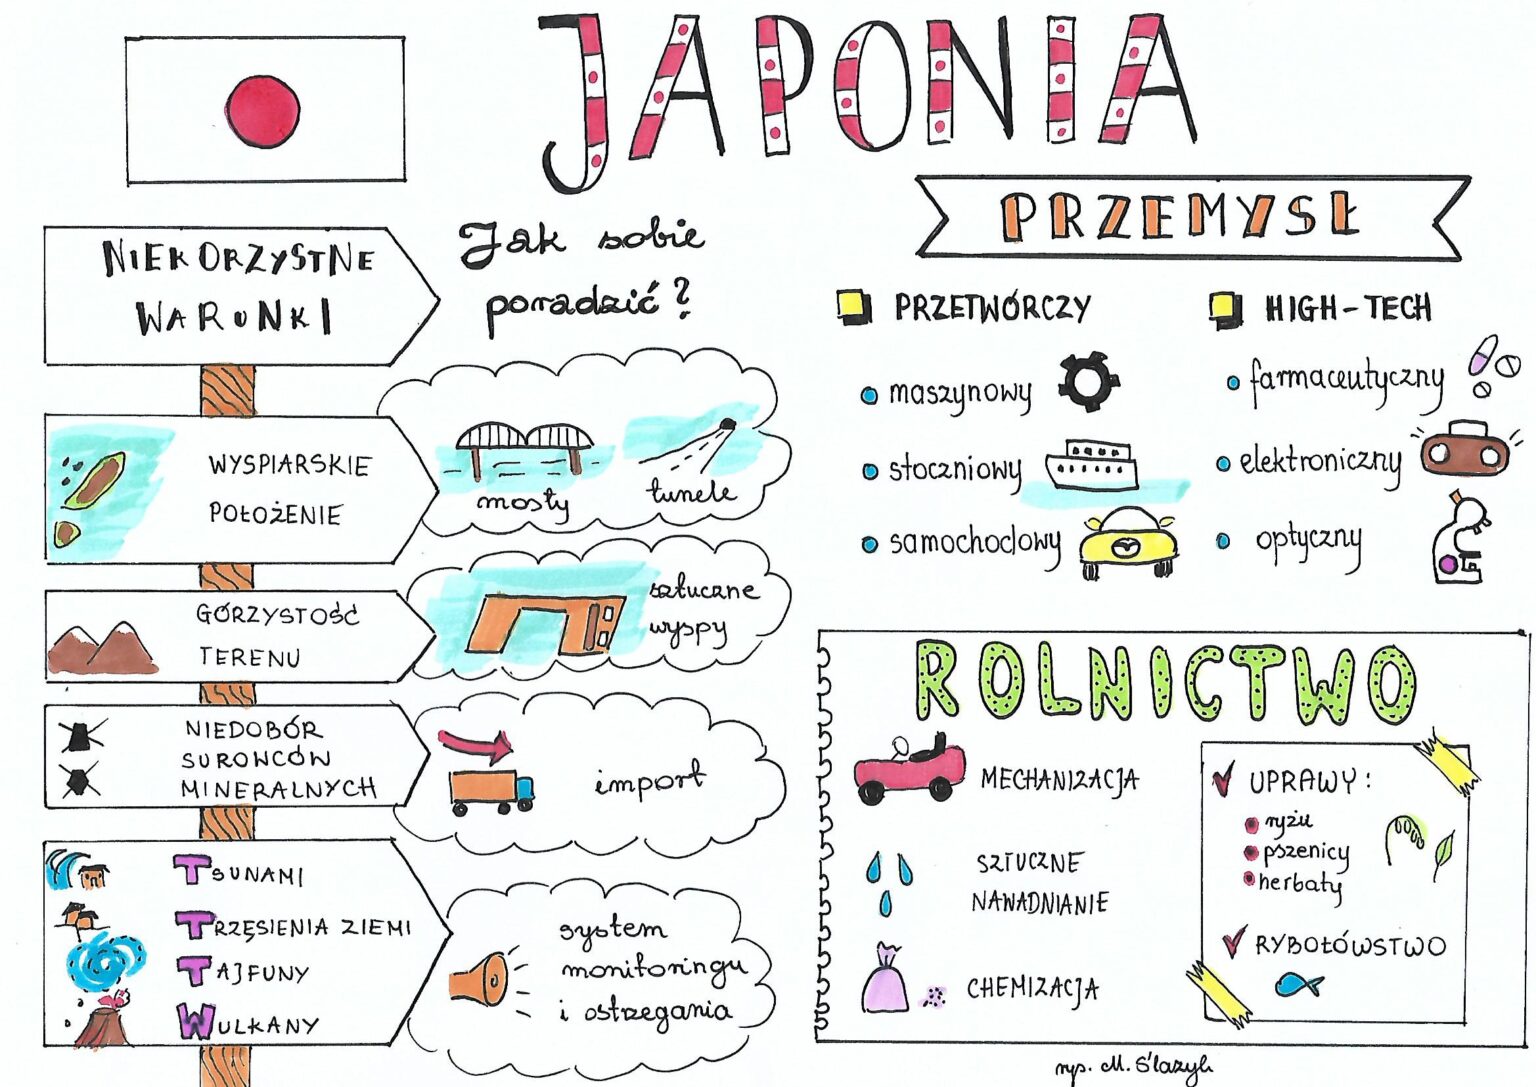 JAPONIA
NIEKORZYSTNE
WARUNKI
Jak sobie
poradzić?
WYSPIARSKIE
POŁOŻENIE
mosty
tunele
GÓRZYSTOŚĆ
TERENU
sztuczne
wyspy
NIEDOBÓR
SUROWCÓW
MINERALNYCH
import
TSUNAMI
TRZĘSIENIA ZIEMI
TAJFUNY
WULKANY
system
monitoringu
i ostrzegania
PRZEMYSŁ
PRZETWÓRCZY
maszynowy
stoczniowy
samochodowy
HIGH-TECH
farmaceutyczny
elektroniczny
optyczny
ROLNICTWO
MECHANIZACJA
SZTUCZNE
NAWADNIANIE
CHEMIZACJA
UPRAWY:
ryżu
pszenicy
herbaty
RYBOŁÓWSTWO
rys. M.